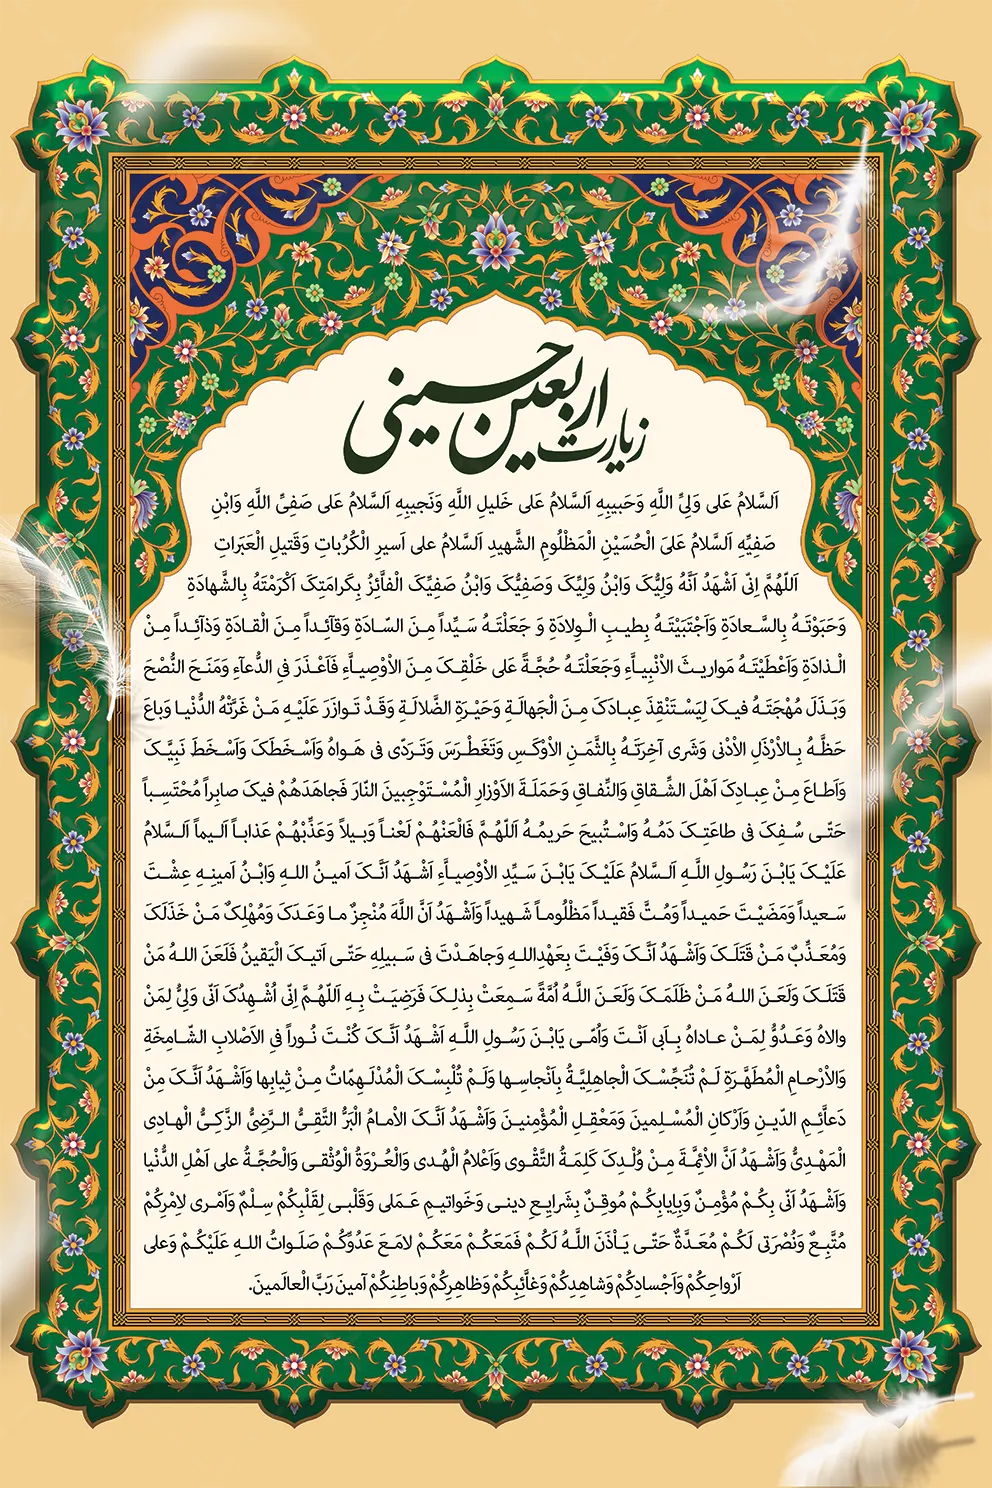 زیارت اربعین حسینی
اَلسَّلامُ عَلی وَلِیِّ اللَّهِ وَحَبیبِهِ اَلسَّلامُ عَلی خَلیلِ اللَّهِ وَنَجیبِهِ اَلسَّلامُ عَلی صَفِیِّ اللَّهِ وَابْنِ
صَفِیِّهِ اَلسَّلامُ عَلیَ الْحُسَیْنِ الْمَظْلُومِ الشَّهیدِ اَلسَّلامُ علی اَسیرِ الْکُرُباتِ وَقَتیلِ الْعَبَراتِ
اَللّهُمَّ اِنّی اَشْهَدُ اَنَّهُ وَلِیُّکَ وَابْنُ وَلِیِّکَ وَصَفِیُّکَ وَابْنُ صَفِیِّکَ الْفاَّئِزُ بِکَرامَتِکَ اَکْرَمْتَهُ بِالشَّهادَةِ
وَحَبَوْتَهُ بِالسَّعادَةِ وَاَجْتَبَیْتَهُ بِطیبِ الْوِلادَةِ وَ جَعَلْتَهُ سَیِّداً مِنَ السّادَةِ وَقآئِداً مِنَ الْقادَةِ وَذآئِداً مِنْ
الْذادَةِ وَاَعْطَیْتَهُ مَواریثَ الاْنْبِیاَّءِ وَجَعَلْتَهُ حُجَّةً عَلی خَلْقِکَ مِنَ الاْوْصِیاَّءِ فَاَعْذَرَ فیِ الدُّعآءِ وَمَنَحَ النُّصْحَ
وَبَذَلَ مُهْجَتَهُ فیکَ لِیَسْتَنْقِذَ عِبادَکَ مِنَ الْجَهالَةِ وَحَیْرَةِ الضَّلالَةِ وَقَدْ تَوازَرَ عَلَیْهِ مَنْ غَرَّتْهُ الدُّنْیا وَباعَ
حَظَّهُ بِالاْرْذَلِ الاْدْنی وَشَری آخِرَتَهُ بِالثَّمَنِ الاْوْکَسِ وَتَغَطْرَسَ وَتَرَدّی فی هَواهُ وَاَسْخَطَکَ وَاَسْخَطَ نَبِیَّکَ
وَاَطاعَ مِنْ عِبادِکَ اَهْلَ الشِّقاقِ وَالنِّفاقِ وَحَمَلَةَ الاْوْزارِ الْمُسْتَوْجِبینَ النّارَ فَجاهَدَهُمْ فیکَ صابِراً مُحْتَسِباً
حَتّی سُفِکَ فی طاعَتِکَ دَمُهُ وَاسْتُبیحَ حَریمُهُ اَللّهُمَّ فَالْعَنْهُمْ لَعْناً وَبیلاً وَعَذِّبْهُمْ عَذاباً اَلیماً اَلسَّلامُ
عَلَیْکَ یَابْنَ رَسُولِ اللَّهِ اَلسَّلامُ عَلَیْکَ یَابْنَ سَیِّدِ الاْوْصِیاَّءِ اَشْهَدُ اَنَّکَ اَمینُ اللهِ وَابْنُ اَمینِهِ عِشْتَ
سَعیداً وَمَضَیْتَ حَمیداً وَمُتَّ فَقیداً مَظْلُوماً شَهیداً وَاَشْهَدُ اَنَّ اللَّهَ مُنْجِزٌ ما وَعَدَکَ وَمُهْلِکٌ مَنْ خَذَلَکَ
وَمُعَذِّبٌ مَنْ قَتَلَکَ وَاَشْهَدُ اَنَّکَ وَفَیْتَ بِعَهْدِاللهِ وَجاهَدْتَ فی سَبیلِهِ حَتّی اَتیکَ الْیَقینُ فَلَعَنَ اللهُ مَنْ
قَتَلَکَ وَلَعَنَ اللهُ مَنْ ظَلَمَکَ وَلَعَنَ اللَّهُ اُمَّةً سَمِعَتْ بِذلِکَ فَرَضِیَتْ بِهِ اَللّهُمَّ اِنّی اُشْهِدُکَ اَنّی وَلِیُّ لِمَنْ
والاهُ وَعَدُوُّ لِمَنْ عاداهُ بِاَبی اَنْتَ وَاُمّی یَابْنَ رَسُولِ اللَّهِ اَشْهَدُ اَنَّکَ کُنْتَ نُوراً فیِ الاْصْلابِ الشّامِخَةِ
وَالاْرْحامِ الْمُطَهَّرَةِ لَمْ تُنَجِّسْکَ الْجاهِلِیَّةُ بِاَنْجاسِها وَلَمْ تُلْبِسْکَ الْمُدْلَهِمّاتُ مِنْ ثِیابِها وَاَشْهَدُ اَنَّکَ مِنْ
دَعاَّئِمِ الدّینِ وَاَرْکانِ الْمُسْلِمینَ وَمَعْقِلِ الْمُؤْمِنینَ وَاَشْهَدُ اَنَّکَ الاْمامُ الْبَرُّ التَّقِیُّ الرَّضِیُّ الزَّکِیُّ الْهادِی
الْمَهْدِیُّ وَاَشْهَدُ اَنَّ الاْئِمَّةَ مِنْ وُلْدِکَ کَلِمَةُ التَّقْوی وَاَعْلامُ الْهُدی وَالْعُرْوَةُ الْوُثْقی وَالْحُجَّةُ علی اَهْلِ الدُّنْیا
وَاَشْهَدُ اَنّی بِکُمْ مُؤْمِنٌ وَبِاِیابِکُمْ مُوقِنٌ بِشَرایِعِ دینی وَخَواتیمِ عَمَلی وَقَلْبی لِقَلْبِکُمْ سِلْمٌ وَاَمْری لاِمْرِکُمْ
مُتَّبِعٌ وَنُصْرَتی لَکُمْ مُعَدَّةٌ حَتّی یَاْذَنَ اللَّهُ لَکُمْ فَمَعَکُمْ مَعَکُمْ لامَعَ عَدُوِّکُمْ صَلَواتُ اللهِ عَلَیْکُمْ وَعلی
اَرْواحِکُمْ وَاَجْسادِکُمْ وَشاهِدِکُمْ وَغاَّئِبِکُمْ وَظاهِرِکُمْ وَباطِنِکُمْ آمینَ رَبَّ الْعالَمینَ.